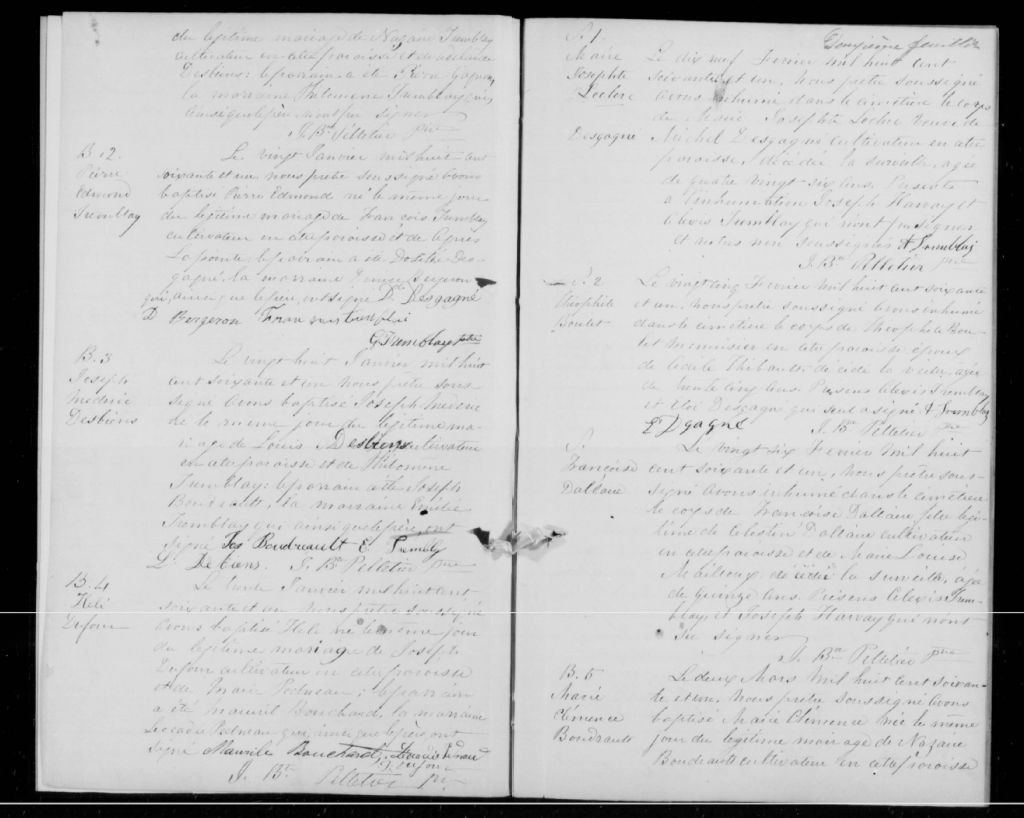 du légitime mariage de Nazaire Tremblay
cultivateur en cette paroisse et de
Desbiens; le parrain a été Pierre Gagnon
la marraine Philomene Tremblay qui
ainsi que le père n'ont pu signer
J. Bte Pelletier Ptre
B. 2.
Pierre
Edmond
Tremblay
Le vingt Janvier mil huit cent
soixante et un nous prêtre soussigné avons
baptisé Pierre Edmond né le même jour
du légitime mariage de François Tremblay
cultivateur en cette paroisse et de Agnès
Lapointe le parrain a été Dosithé Des-
gagné la marraine Bergeron
qui, ainsi que le père, ont signé D. Desgagné
D Bergeron
G Tremblay ptre
B. 3
Joseph
Médéric
Desbiens
Le vingt huit Janvier mil huit
cent soixante et un nous prêtre sous-
signé avons baptisé Joseph Médéric
né le même jour du légitime ma-
riage de Louis Desbiens cultivateur
en cette paroisse et de Philomène
Tremblay le parrain a été Joseph
Boudreault, la marraine Emélie
Tremblay qui ainsi que le père, ont
signé Jos Boudreault E. Trembly
L. De biens. J. Bte Pelletier Ptre
B. 4
Héli
Dufour
Le trente Janvier mil huit cent
soixante et un nous prêtre soussigné
avons baptisé Héli né le même jour
du légitime mariage de Joseph
Dufour cultivateur en cette paroisse
et de Marie ; le parrain
a été Bouchard, la marraine
Léocadie qui, ainsi que le père ont
signé Maurile Bouchard, Léocadie
J. Dufour
J. Bte Pelletier Ptre
Deuxième feuillet
S. 1.
Marie
Josephte
Leclerc
Desgagné
Le dix neuf Fevrier mil huit cent
soixante et un, nous prêtre soussigné
avons inhumé dans le cimetière le corps
de Marie Josephte Leclerc veuve de
Michel Desgagné cultivateur en cette
paroisse, décédée la surveille, agée
de quatre vingt six ans. Présents
à l'inhumation Joseph Harvay et
Alexis Tremblay qui n'ont pu signer
A Tremblay
J. Bte Pelletier Ptre
S. 2
Théophile
Boulet
Le vingt cinq Fevrier mil huit cent soixante
et un, nous prêtre soussigné avons inhumé
dans le cimetière le corps de Théophile Bou-
let menuisier en cette paroisse époux
de Cécile Thibault décédé la veille, agé
de trente cinq ans. Présens Alexis Tremblay
et Eloi Desgagné qui seul a signé A Tremblay
E. Dgagné J. Bte Pelletier Ptre
S.
Françoise
Daltaire
Le vingt six Fevrier mil huit
cent soixante et un, nous prêtre sous-
signé avons inhumé dans le cimetière
le corps de Françoise Daltaire fille légi-
time de Célestin Daltaire cultivateur
en cette paroisse et de Marie Louise
Mailloux, décédée la surveille, agée
de quinze ans. Présens Alexis Trem-
blay et Joseph Harvay qui n'ont
su signer
J. Bte Pelletier Ptre
B. 5
Marie
Clémence
Boudreault
Le deux Mars mil huit cent soixan-
te et un, nous prêtre soussigné avons
baptisé Marie Clémence née le même
jour du légitime mariage de Nazaire
Boudreault cultivateur en cette paroisse